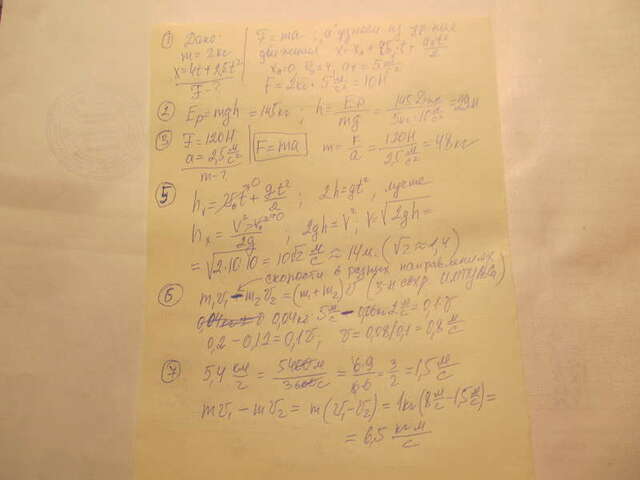 ① Дано: F = ma ; a узнаем из ур-ния
m = 2кг движения x = x₀ + v₀t + at²/2
x = 4t + 2,5t² x₀ = 0, v₀ = 4, aₓ = 5 м/с²
F - ? F = 2кг · 5 м/с² = 10 Н
② Eₚ = mgh = 145 кг ; h = Eₚ/mg =
③ F = 120 Н
a = 2,5 м/с² F = ma m = F/a = 120 Н/2,5 м/с² = 48 кг
m - ?
⑤ h₁ = v₀t + gt²/2 ; 2h = gt², лучше
hₓ = V² - V₀²/2g ; 2gh = V² ; V = √2gh =
= √2·10·10 = 10√2 м/с ≈ 14 м/с (√2 ≈ 1,4)
скорости в разных направлениях
⑥ m₁v₁ - m₂v₂ = (m₁ + m₂)v (з-н сохр. импульса)
0,04кг · 5 м/с - 0,06кг · 2 м/с = 0,1 · v
0,2 - 0,12 = 0,1v, v = 0,08/0,1 = 0,8 м/с
⑦ 5,4 км/г = 5400м/3600с = 6·9/6·6 = 3/2 = 1,5 м/с
mv₁ - mv₂ = m(v₁ - v₂) = 1кг (8 м/с - 1,5 м/с) =
= 6,5 кг·м/с